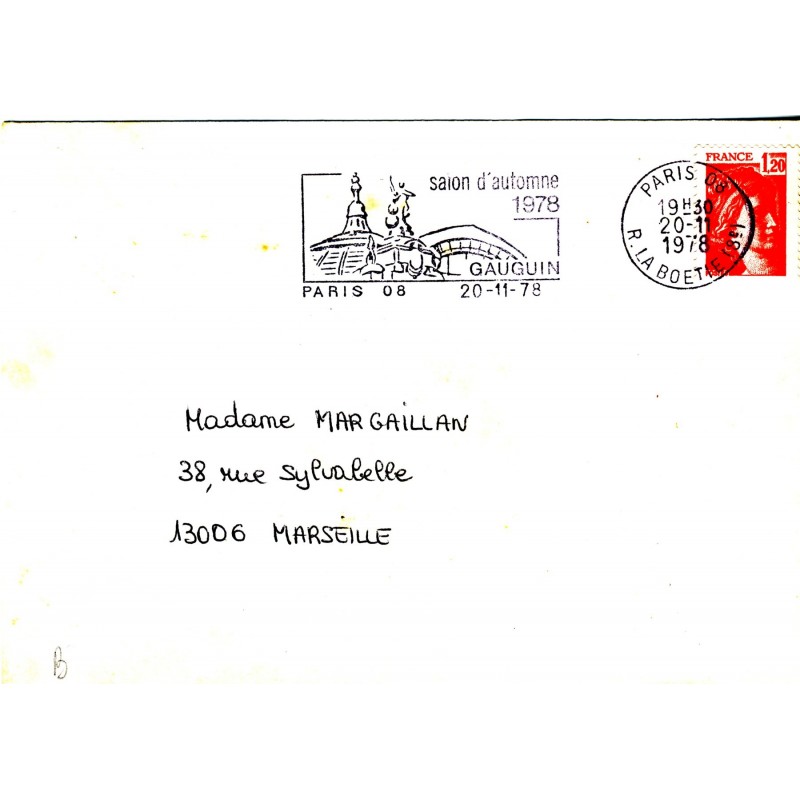 salon d'automne
1978
GAUGUIN
PARIS 08 20-11-78
FRANCE 1,20
PARIS 08
19H30
20-11
1978
R. LA BOETIE (8e)
Madame MARGAILLAN
38, rue Sylvabelle
13006 MARSEILLE
B